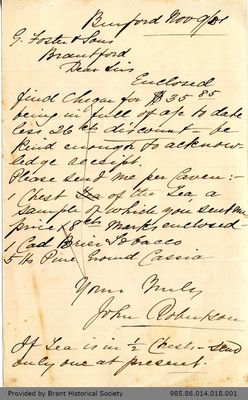 Burford Nov 9/88
G. Foster & Sons
Brantford
Dear Sirs
Enclosed
find Cheque for $35 85
being in full of a/c to date
less 26 cts discount - be
kind enough to acknow-
ledge receipt.
Please send me per Caven:-
1 Chest of the Tea, a
sample of which you sent me
price & Mark, enclosed-
1 Cad Brier Tobacco
5 lbs Pure Ground Cassia
Yours Truly
John
If Tea is in ½ Chests - send
only one at present.
Provided by Brant Historical Society
985.86.014.018.001